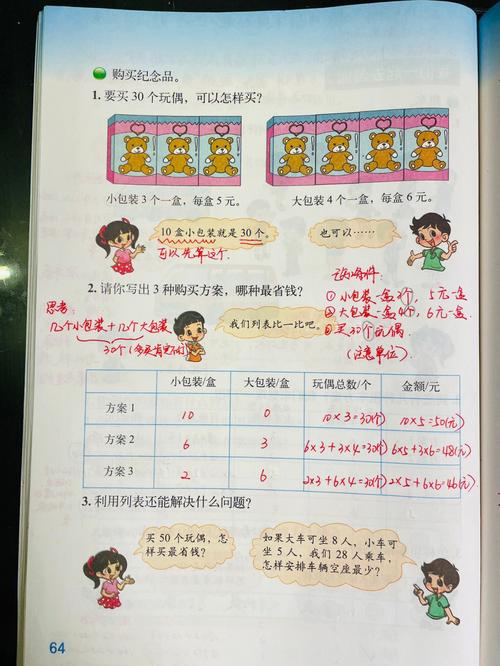 购买纪念品。
1. 要买 30 个玩偶，可以怎样买？
小包装 3 个一盒，每盒 5 元。
大包装 4 个一盒，每盒 6 元。
10 盒小包装就是 30 个。
也可以……
可以先算这个.
2. 请你写出 3 种购买方案，哪种最省钱？
已知条件:
① 小包装一盒3个，5元一盒
② 大包装一盒4个，6元一盒
③ 买30个玩偶
(注意单位).
思考:
几个小包装+几个大包装
我们列表比一比吧。
小包装/盒 大包装/盒 玩偶总数/个 金额/元
方案 1 10 0 10×3=30(个) 10×5=50(元)
方案 2 6 3 6×3+3×4=30(个) 6×5+3×6=48(元)
方案 3 2 6 2×3+6×4=30(个) 2×5+6×6=46(元)
3. 利用列表还能解决什么问题？
买 50 个玩偶，怎
样买最省钱？
如果大车可坐 8 人，小车可
坐 5 人，我们 28 人乘车，
怎样安排车辆空座最少？
64